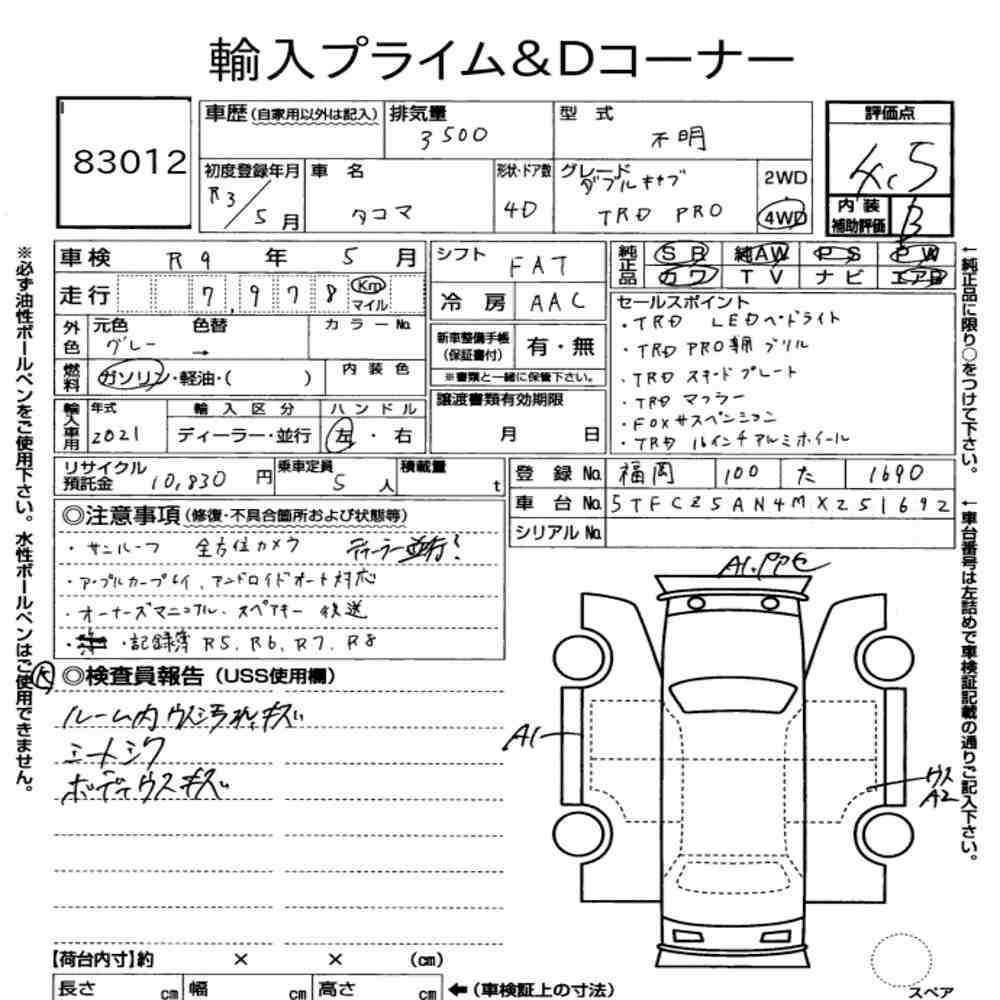 輸入プライム&Dコーナー
83012
車歴(自家用以外は記入)
排気量
3500
型 式
不明
評価点
4.5
初度登録年月
R3/5月
車 名
タコマ
形状・ドア数
4D
グレード
ダブルキャブ
TRD PRO
2WD
4WD
内装
補助評価
B
車検 R9年 5月
走行 7,978 Km マイル
シフト FAT
冷房 AAC
純正品
SR 純AW PS PW
カワ TV ナビ エアB
外色
元色 色替 カラーNo.
グレー →
燃料
ガソリン・軽油・( )
内装色
新車整備手帳
(保証書付)
有・無
※書類と一緒に保管下さい。
セールスポイント
・TRD LEDヘドライト
・TRD PRO専用グリル
・TRD スキードプレート
・TRD マフラー
・FOXサスペンション
・TRD 16インチアルミホイール
輸入車用
年式 2021
輸入区分
ディーラー・並行
ハンドル
左・右
譲渡書類有効期限
月 日
リサイクル
預託金 10,830円
乗車定員 5人
積載量 t
登録No. 福岡 100 た 1690
車台No. 5TFCZ5AN4MX251692
シリアルNo.
◎注意事項(修復・不具合箇所および状態等)
・サンルーフ 全方位カメラ ディーラー並行!
・アップルカープレイ、アンドロイドオート対応
・オーナーズマニュアル、スペアキー 後送
・記録簿 R5、R6、R7、R8
◎検査員報告(USS使用欄)
ルーム内ウス汚れキズ
シートシワ
ボディウスキズ
A1
A1
ウス
A2
【荷台内寸】約 × × (cm)
長さ cm 幅 cm 高さ cm ←(車検証上の寸法)
スペア
※必ず油性ボールペンをご使用下さい。水性ボールペンはご使用できません。
←純正品に限り○をつけて下さい。
←車台番号は左詰めで車検証記載の通りご記入下さい。